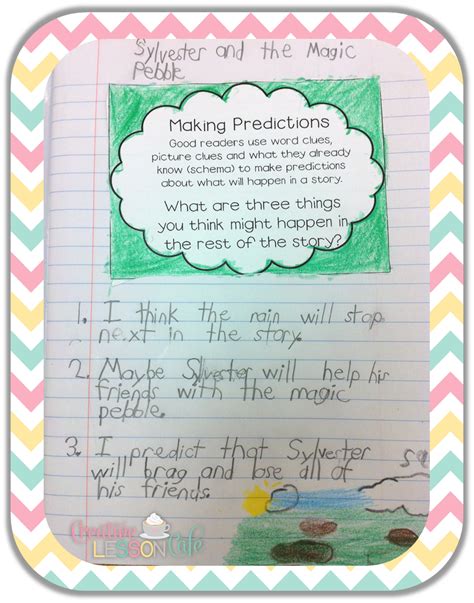 Sylvester and the Magic
Pebble
Making Predictions
Good readers use word clues,
picture clues and what they already
know (schema) to make predictions
about what will happen in a story.
What are three things
you think might happen in
the rest of the story?
1. I think the rain will stop
next in the story.
2. Maybe Sylvester will help his
friends with the magic
pebble.
3. I predict that Sylvester
will brag and lose all of
his friends.
Creative
LESSON Cafe